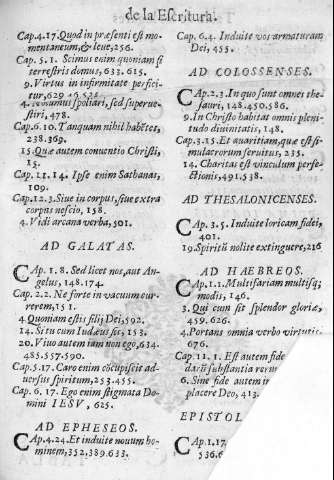 de la Escritura.
Cap. 4.17. Quod in præsenti est mo-
mentaneum, & leve, 256.
Cap. 5. 1. Scimus enim quoniam si
terrestris domus, 633. 615.
9. Virtus in infirmitate perfici-
tur, 629.
spoliari, sed superve-
stiri, 478.
Cap. 6.10. Tanquam nihil habẽtes,
238.369.
15. Quæ autem conventio Christi,
15.
Cap. 11. 14. Ipse enim Sathanas,
109.
Cap. 12.3. Sive in corpus, sive extra
corpus nescio, 158.
4. Vidi arcana verba, 501.
AD GALATAS.
CAp. 1. 8. Sed licet nos, aut An-
gelus, 148.174.
Cap. 2.2. Ne forte in vacuum cur-
rerem, 151.
4 Quoniam estis filij Dei, 592.
14. Si tu cum Iudæus sis, 153.
20. Vivo autem iam non ego, 634.
485.557.590.
Cap. 5.17. Caro enim cõcupiscit ad-
versus spiritum, 253.455.
Cap. 6. 17. Ego enim stigmata Do-
mini IESV, 625.
AD EPHESEOS.
CAp. 4.24. Et induite novum ho-
minem, 352.389.633.
Cap. 6.4. Induite vos armaturam
Dei, 455.
AD COLOSSENSES.
CAp. 2.3. In quo sunt omnes the-
sauri, 148.450.586.
9. In Christo habitat omnis pleni-
tudo divinitatis, 148.
Cap. 3.15. Et avaritiam, quæ est si-
mulacrorum servitus, 235.
14. Charitas est vinculum perfe-
ctionis, 491.538.
AD THESALONICENSES.
CAp. 3.5. Induite loricam fidei,
401.
19. Spiritũ nolite extinguere, 216
AD HAEBREOS.
CAp. 1.1. Multifariam multisq;
modis, 146.
3. Qui cum sit splendor gloriæ,
459.626.
Portans omnia verbo virtutis
676.
Cap. 11. 1. Est autem fide
darũ substantia rerum
6. Sine fide autem im
placere Deo, 413.
EPISTOL
CAp. 1.17
536.6